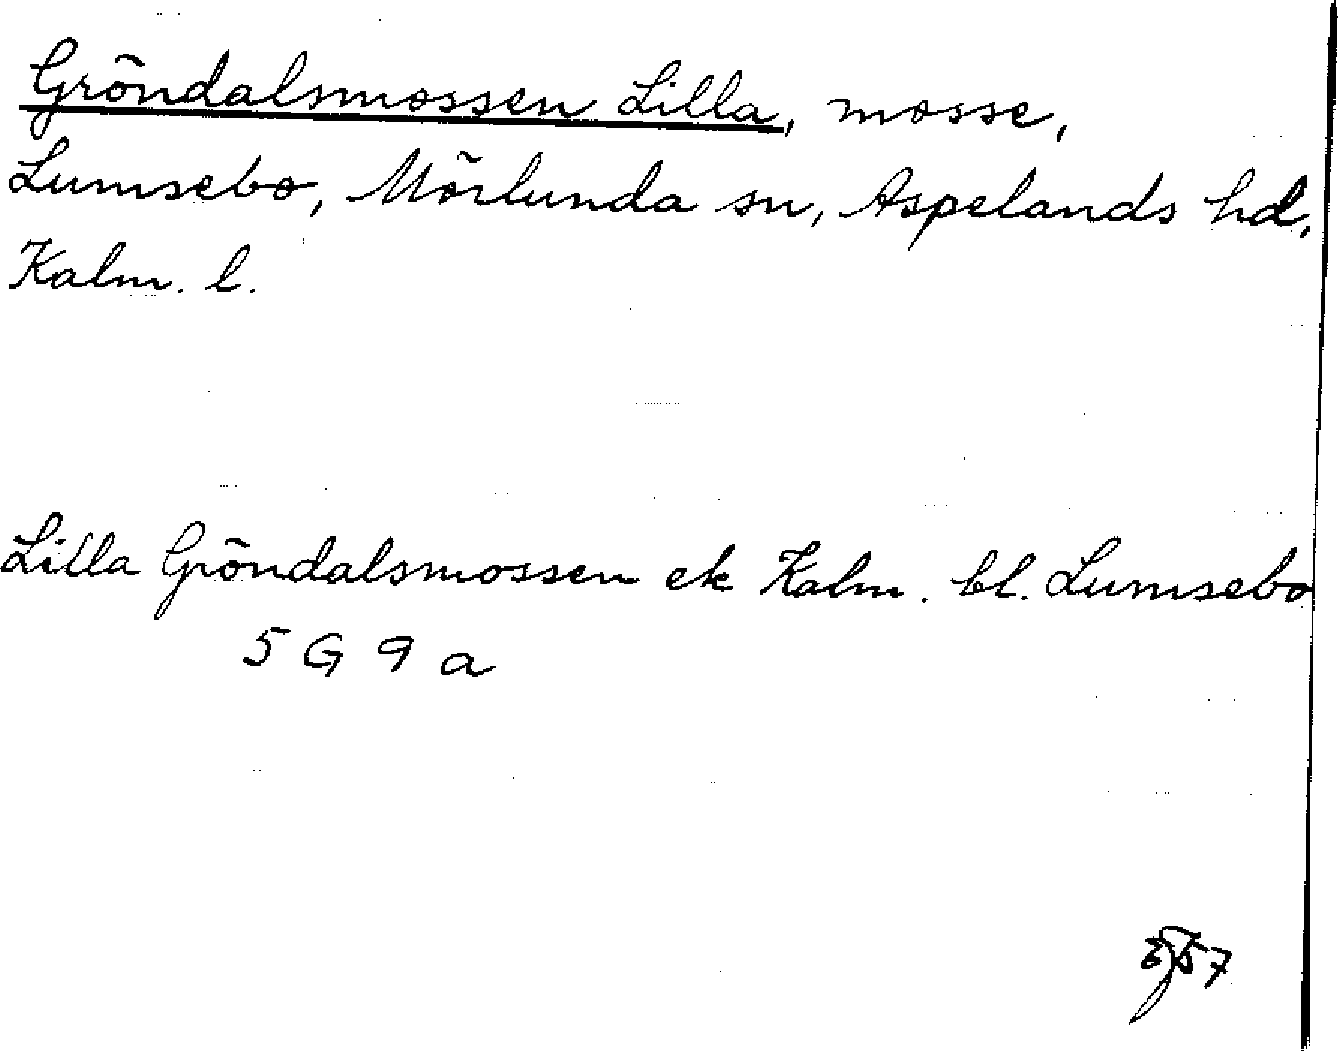 Gröndalsmossen Lilla, mosse,
Lumsebo, Mörlunda sn, Aspelands hd,
Kalm. l.
Lilla Gröndalsmossen ek Kalm. bl. Lumsebo
5 G 9 a